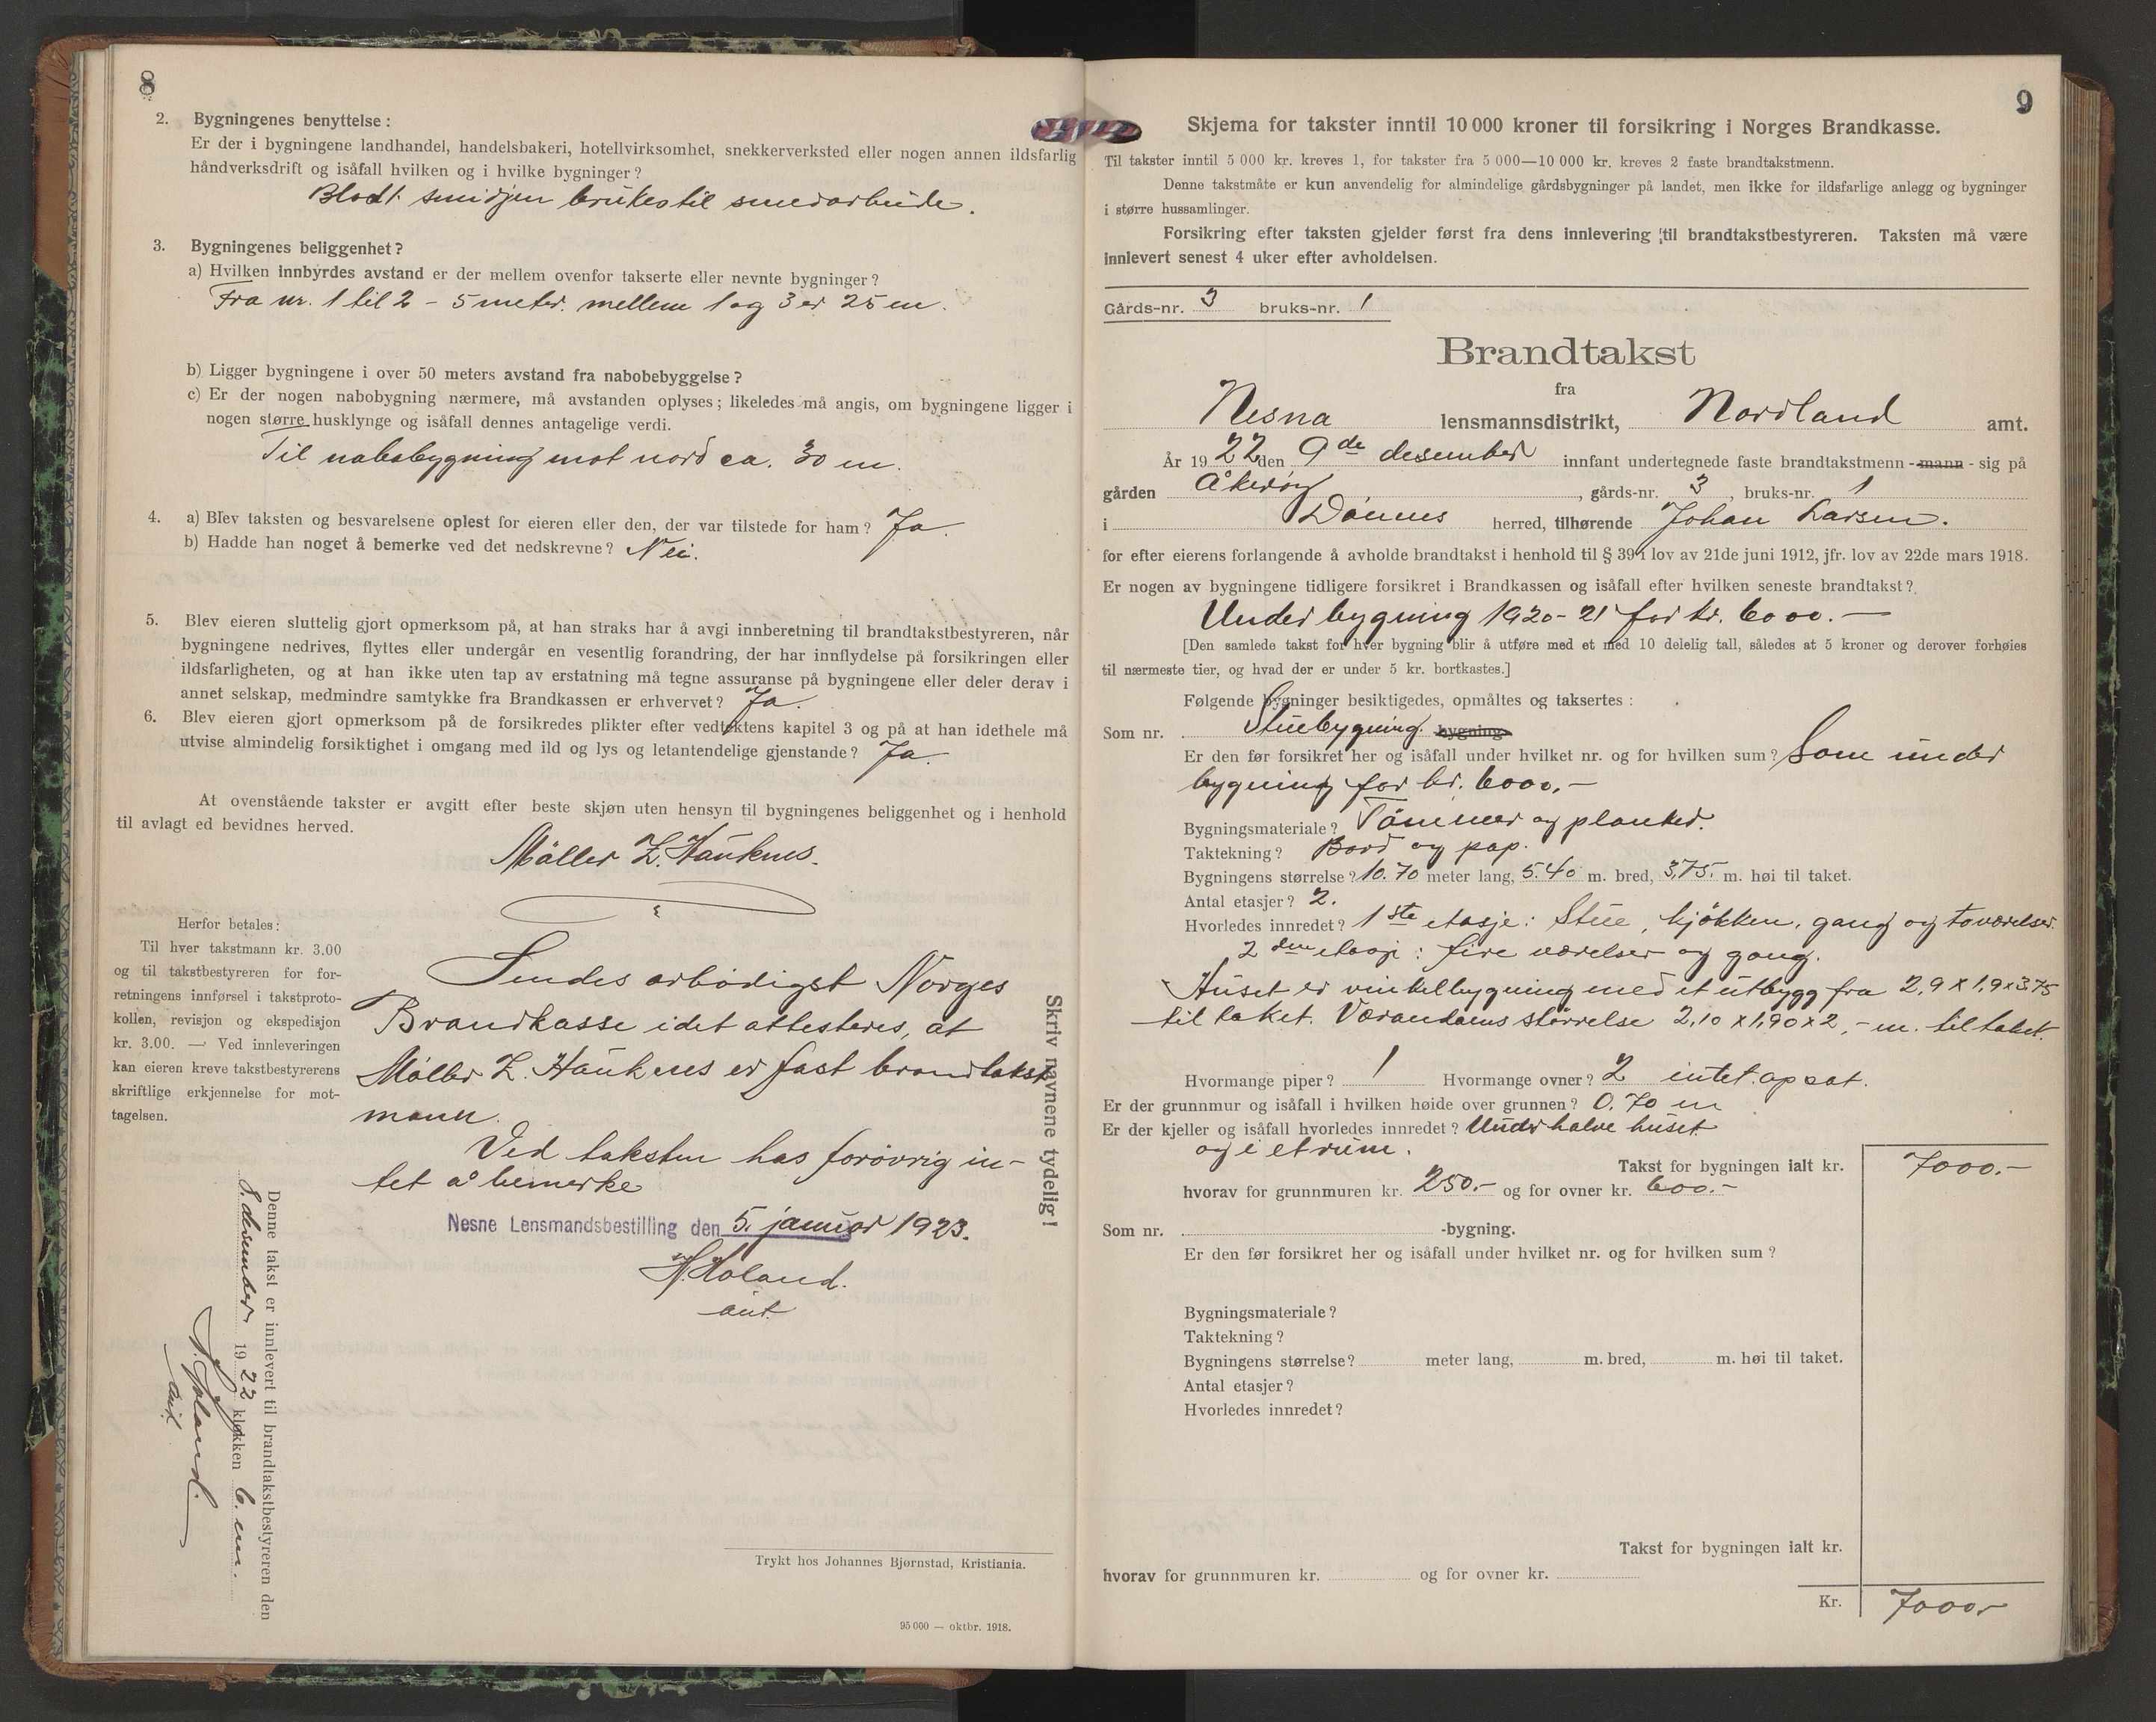 8
2. Bygningenes benyttelse:
Er der i bygningene landhandel, handelsbakeri, hotellvirksomhet, snekkerverksted eller nogen annen ildsfarlig
håndverksdrift og isåfall hvilken og i hvilke bygninger?
Blodt smidjen brukes til smedarbeide.
3. Bygningenes beliggenhet?
a) Hvilken innbyrdes avstand er der mellem ovenfor takserte eller nevnte bygninger?
Fra nr. 1 til 2 - 5 meter. mellem 1 og 3 er 25 m.
b) Ligger bygningene i over 50 meters avstand fra nabobebyggelse?
c) Er der nogen nabobygning nærmere, må avstanden oplyses; likeledes må angis, om bygningene ligger i
nogen større husklynge og isåfall dennes antagelige verdi.
Til nabobygning mot nord ca. 30 m.
4. a) Blev taksten og besvarelsene oplest for eieren eller den, der var tilstede for ham? Ja.
b) Hadde han noget å bemerke ved det nedskrevne? Nei.
5. Blev eieren sluttelig gjort opmerksom på, at han straks har å avgi innberetning til brandtakstbestyreren, når
bygningene nedrives, flyttes eller undergår en vesentlig forandring, der har innflydelse på forsikringen eller
ildsfarligheten, og at han ikke uten tap av erstatning må tegne assuranse på bygningene eller deler derav i
annet selskap, medmindre samtykke fra Brandkassen er erhvervet? Ja.
6. Blev eieren gjort opmerksom på de forsikredes plikter efter vedtektens kapitel 3 og på at han idethele må
utvise almindelig forsiktighet i omgang med ild og lys og letantendelige gjenstande? Ja.
At ovenstående takster er avgitt efter beste skjøn uten hensyn til bygningenes beliggenhet og i henhold
til avlagt ed bevidnes herved.
Møller Z. Haukenes.
Herfor betales:
Til hver takstmann kr. 3.00
og til takstbestyreren for for-
retningens innførsel i takstproto-
kollen, revisjon og ekspedisjon
kr. 3.00. — Ved innleveringen
kan eieren kreve takstbestyrerens
skriftlige erkjennelse for mot-
tagelsen.
Sendes ærbødigst Norges
Brandkasse idet attesteres, at
Møller Z. Haukenes er fast brandtakst
mann.
Ved taksten has forøvrig in-
tet å bemerke
Nesne Lensmandsbestilling den 5. januar 1923.
H. Holand.
aut.
Skriv navnene tydelig!
Denne takst er innlevert til brandtakstbestyreren den
8. desember 1922 klokken 6. em.
H. Holand.
aut.
Trykt hos Johannes Bjørnstad, Kristiania.
95 000 — oktbr. 1918.
9
Skjema for takster inntil 10 000 kroner til forsikring i Norges Brandkasse.
Til takster inntil 5 000 kr. kreves 1, for takster fra 5 000—10 000 kr. kreves 2 faste brandtakstmenn.
Denne takstmåte er kun anvendelig for almindelige gårdsbygninger på landet, men ikke for ildsfarlige anlegg og bygninger
i større hussamlinger.
Forsikring efter taksten gjelder først fra dens innlevering til brandtakstbestyreren. Taksten må være
innlevert senest 4 uker efter avholdelsen.
Gårds-nr. 3 bruks-nr. 1
Brandtakst
fra
Nesna lensmannsdistrikt, Nordland amt.
År 1922 den 9de desember innfant undertegnede faste brandtakstmenn - mann - sig på
gården Åkerøy, gårds-nr. 3, bruks-nr. 1
i Dønnes herred, tilhørende Johan Larsen.
for efter eierens forlangende å avholde brandtakst i henhold til § 39 i lov av 21de juni 1912, jfr. lov av 22de mars 1918.
Er nogen av bygningene tidligere forsikret i Brandkassen og isåfall efter hvilken seneste brandtakst?
Under bygning 1920-21 for kr. 6000.-
[Den samlede takst for hver bygning blir å utføre med et med 10 delelig tall, således at 5 kroner og derover forhøies
til nærmeste tier, og hvad der er under 5 kr. bortkastes.]
Følgende bygninger besiktigedes, opmåltes og taksertes:
Som nr. Stuebygning. bygning
Er den før forsikret her og isåfall under hvilket nr. og for hvilken sum? Som under
bygning for kr. 6000.-
Bygningsmateriale? Tømmer og planker.
Taktekning? Bord og pap.
Bygningens størrelse? 10.70 meter lang, 5.40 m. bred, 3,75. m. høi til taket.
Antal etasjer? 2.
Hvorledes innredet? 1ste etasje: Stue, kjøkken, gang og to værelser.
2den etasje: fire værelser og gang.
Huset er vinkelbygning med et utbygg fra 2,9 x 1,9 x 3,75
til taket. Værandaens størrelse 2,10 x 1,90 x 2,- m. til taket.
Hvormange piper? 1 Hvormange ovner? 2 intet opsat.
Er der grunnmur og isåfall i hvilken høide over grunnen? 0.70 m
Er der kjeller og isåfall hvorledes innredet? Under halve huset
og i et rum.
Takst for bygningen ialt kr. 7000.-
hvorav for grunnmuren kr. 250.- og for ovner kr. 600.-
Som nr. -bygning.
Er den før forsikret her og isåfall under hvilket nr. og for hvilken sum?
Bygningsmateriale?
Taktekning?
Bygningens størrelse? meter lang, m. bred, m. høi til taket.
Antal etasjer?
Hvorledes innredet?
Takst for bygningen ialt kr.
hvorav for grunnmuren kr. og for ovner kr.
Kr. 7000.-